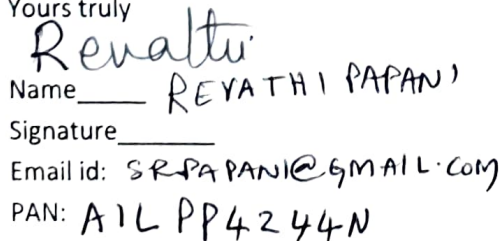 Yours truly
Revathi
Name_____ REVATHI PAPANI
Signature_______
Email id: SRPAPANI@GMAIL.COM
PAN: AILPP4244N